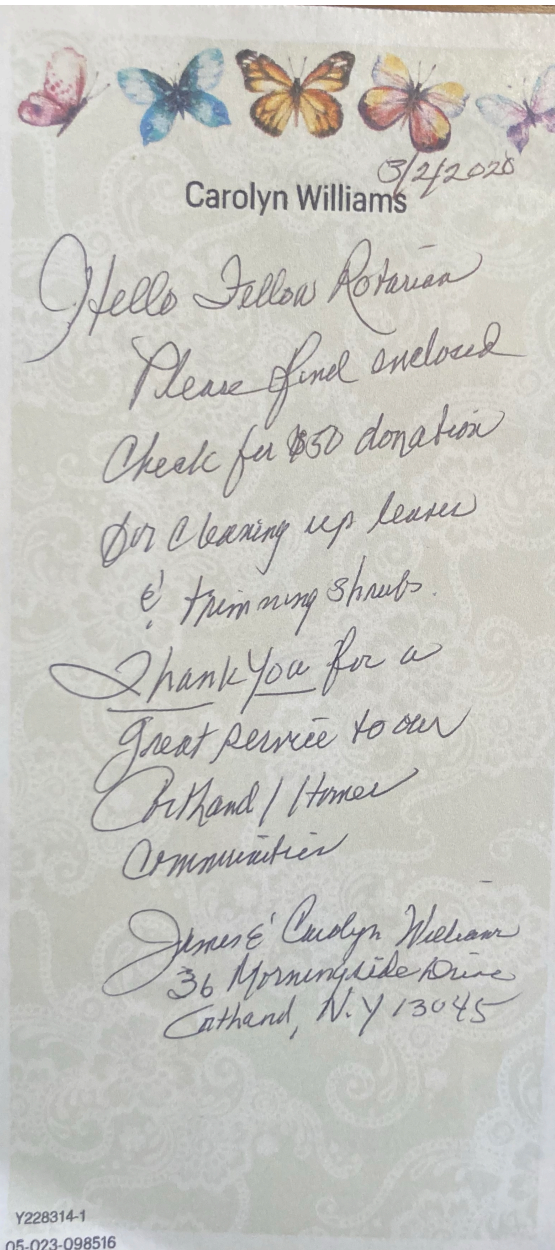 3/2/2020
Carolyn Williams
Hello Fellow Rotarian
Please find enclosed
Check for $50 donation
for cleaning up leaves
& trimming shrubs.
Thank You for a
great service to our
Cortland / Homer
Communities
James & Carolyn Williams
36 Morningside Drive
Cortland, N.Y 13045
Y228314-1
05-023-098516